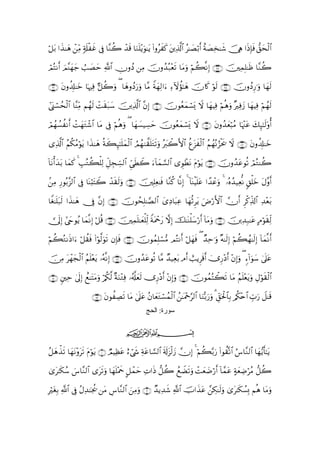 الْحَقُّ فَإِذَا هِيَ شَاخِصَةٌ أَبْصَارُ الَّذِينَ كَفَرُوا يَا وَيْلَنَا قَدْ كُنَّا فِي غَفْلَةٍ مِنْ هَذَا بَلْ
كُنَّا ظَالِمِينَ (97) إِنَّكُمْ وَمَا تَعْبُدُونَ مِنْ دُونِ اللَّهِ حَصَبُ جَهَنَّمَ أَنْتُمْ
لَهَا وَارِدُونَ (98) لَوْ كَانَ هَؤُلَاءِ آلِهَةً مَا وَرَدُوهَا وَكُلٌّ فِيهَا خَالِدُونَ (99)
لَهُمْ فِيهَا زَفِيرٌ وَهُمْ فِيهَا لَا يَسْمَعُونَ (100) إِنَّ الَّذِينَ سَبَقَتْ لَهُمْ مِنَّا الْحُسْنَى
أُولَئِكَ عَنْهَا مُبْعَدُونَ (101) لَا يَسْمَعُونَ حَسِيسَهَا وَهُمْ فِي مَا اشْتَهَتْ أَنْفُسُهُمْ
خَالِدُونَ (102) لَا يَحْزُنُهُمُ الْفَزَعُ الْأَكْبَرُ وَتَتَلَقَّاهُمُ الْمَلَائِكَةُ هَذَا يَوْمُكُمُ الَّذِي
كُنْتُمْ تُوعَدُونَ (103) يَوْمَ نَطْوِي السَّمَاءَ كَطَيِّ السِّجِلِّ لِلْكُتُبِ كَمَا بَدَأْنَا
أَوَّلَ خَلْقٍ نُعِيدُهُ وَعْدًا عَلَيْنَا إِنَّا كُنَّا فَاعِلِينَ (104) وَلَقَدْ كَتَبْنَا فِي الزَّبُورِ مِنْ
بَعْدِ الذِّكْرِ أَنَّ الْأَرْضَ يَرِثُهَا عِبَادِيَ الصَّالِحُونَ (105) إِنَّ فِي هَذَا لَبَلَاغًا
لِقَوْمٍ عَابِدِينَ (106) وَمَا أَرْسَلْنَاكَ إِلَّا رَحْمَةً لِلْعَالَمِينَ (107) قُلْ إِنَّمَا يُوحَى إِلَيَّ
أَنَّمَا إِلَهُكُمْ إِلَهٌ وَاحِدٌ فَهَلْ أَنْتُمْ مُسْلِمُونَ (108) فَإِنْ تَوَلَّوْا فَقُلْ آذَنْتُكُمْ
عَلَى سَوَاءٍ وَإِنْ أَدْرِي أَقَرِيبٌ أَمْ بَعِيدٌ مَا تُوعَدُونَ (109) إِنَّهُ يَعْلَمُ الْجَهْرَ مِنَ
الْقَوْلِ وَيَعْلَمُ مَا تَكْتُمُونَ (110) وَإِنْ أَدْرِي لَعَلَّهُ فِتْنَةٌ لَكُمْ وَمَتَاعٌ إِلَى حِينٍ (111)
قَالَ رَبِّ احْكُمْ بِالْحَقِّ وَرَبُّنَا الرَّحْمَنُ الْمُسْتَعَانُ عَلَى مَا تَصِفُونَ (112)
سورة: الحج
بِسْمِ اللَّهِ الرَّحْمَنِ الرَّحِيمِ
يَا أَيُّهَا النَّاسُ اتَّقُوا رَبَّكُمْ إِنَّ زَلْزَلَةَ السَّاعَةِ شَيْءٌ عَظِيمٌ (1) يَوْمَ تَرَوْنَهَا تَذْهَلُ
كُلُّ مُرْضِعَةٍ عَمَّا أَرْضَعَتْ وَتَضَعُ كُلُّ ذَاتِ حَمْلٍ حَمْلَهَا وَتَرَى النَّاسَ سُكَارَى
وَمَا هُمْ بِسُكَارَى وَلَكِنَّ عَذَابَ اللَّهِ شَدِيدٌ (2) وَمِنَ النَّاسِ مَنْ يُجَادِلُ فِي اللَّهِ بِغَيْرِ